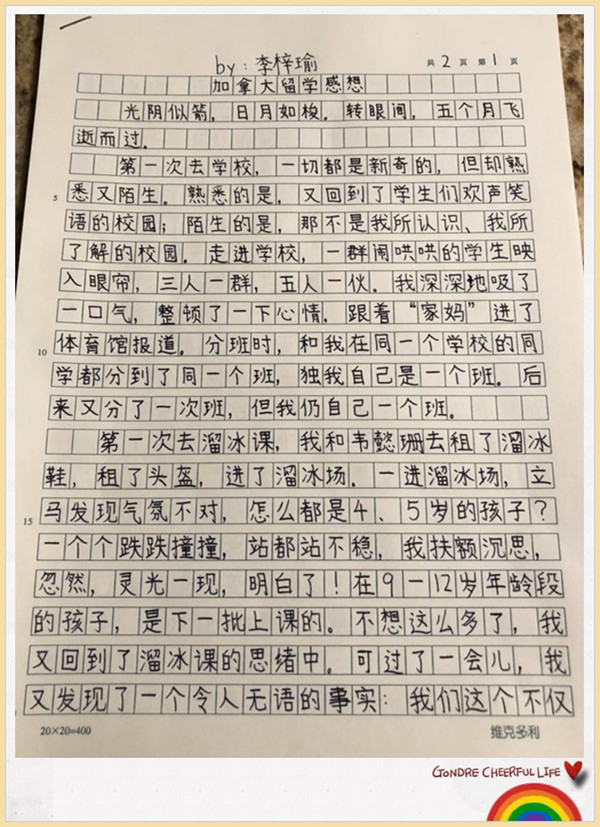 by：李梓瑜
共 2 页 第 1 页
加拿大留学感想
光阴似箭，日月如梭。转眼间，五个月飞
逝而过。
第一次去学校，一切都是新奇的，但却熟
5 悉又陌生。熟悉的是，又回到了学生们欢声笑
语的校园；陌生的是，那不是我所认识、我所
了解的校园。走进学校，一群闹哄哄的学生映
入眼帘，三人一群，五人一伙。我深深地吸了
一口气，整顿了一下心情，跟着“家妈”进了
10 体育馆报道。分班时，和我在同一个学校的同
学都分到了同一个班，独我自己是一个班。后
来又分了一次班，但我仍自己一个班。
第一次去溜冰课，我和韦懿珊去租了溜冰
鞋，租了头盔，进了溜冰场。一进溜冰场，立
15 马发现气氛不对，怎么都是4、5岁的孩子？
一个个跌跌撞撞，站都站不稳，我扶额沉思，
忽然，灵光一现，明白了！在9—12岁年龄段
的孩子，是下一批上课的。不想这么多了，我
又回到了溜冰课的思绪中。可过了一会儿，我
又发现了一个令人无语的事实：我们这个不仅
20×20=400
维克多利
GONDRE CHEERFUL LIFE